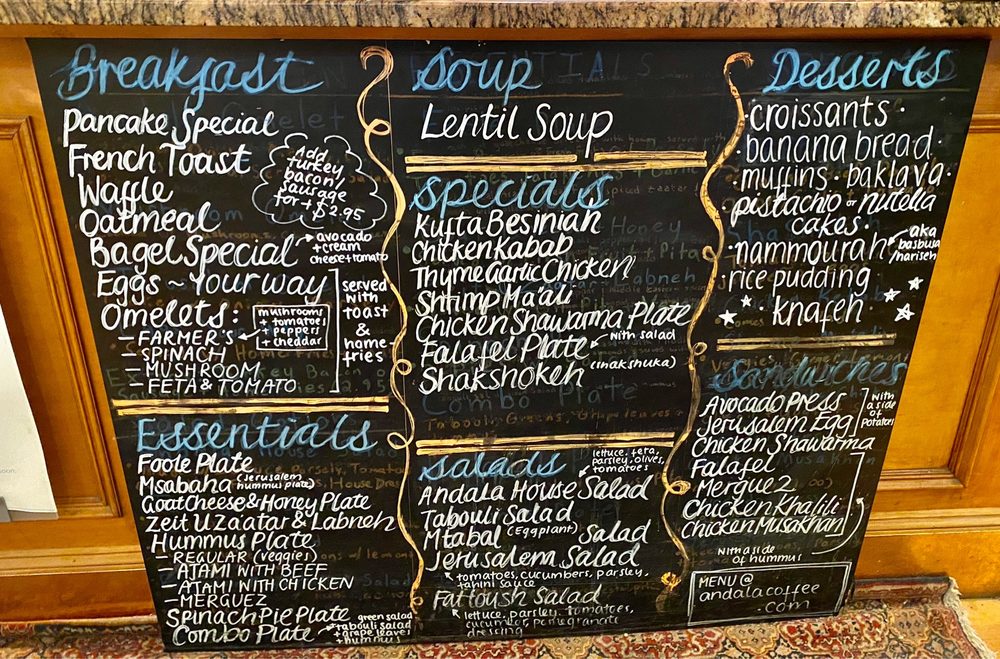 Breakfast
Pancake Special
French Toast
Waffle
Oatmeal
Add
turkey,
bacon,
sausage
for + $2.95
Bagel Special
avocado
+ cream
cheese + tomato
Eggs ~ Your way
Omelets:
mushrooms
+ tomatoes
+ peppers
+ cheddar
— FARMER'S
— SPINACH
— MUSHROOM
— FETA & TOMATO
served
with
toast
&
home-
fries
Essentials
Foole Plate
Msabaha (Jerusalem
hummus plate)
Goat Cheese & Honey Plate
Zeit U Zaatar & Labneh
Hummus Plate
— REGULAR (veggies)
— AJAMI WITH BEEF
— AJAMI WITH CHICKEN
— MERGUEZ
Spinach Pie Plate
Combo Plate
green salad
+ tabouli salad
+ grape leaves
+ hummus
Soup
Lentil Soup
Specials
Kufta Besiniah
Chicken Kabab
Thyme Garlic Chicken
Shrimp Ma'ali
Chicken Shawarma Plate
Falafel Plate
with salad
Shakshokeh (makshuka)
Salads
lettuce, feta,
parsley, olives,
tomatoes
Andala House Salad
Tabouli Salad
Mtabal (Eggplant) Salad
Jerusalem Salad
tomatoes, cucumbers, parsley,
tahini sauce
Fattoush Salad
lettuce, parsley, tomatoes,
cucumber, pomegranate
dressing
Desserts
croissants ·
· banana bread ·
· muffins · baklava ·
pistachio or nutella
cakes ·
· nammourah
aka
basbusa
/hariseh
· rice pudding
· knafeh
Sandwiches
Avocado Press
Jerusalem Egg
Chicken Shawarma
with
a side
of
potatoes
Falafel
Merguez
Chicken Khalili
Chicken Musakhan
with a side
of hummus
MENU @
andalacoffee
.com